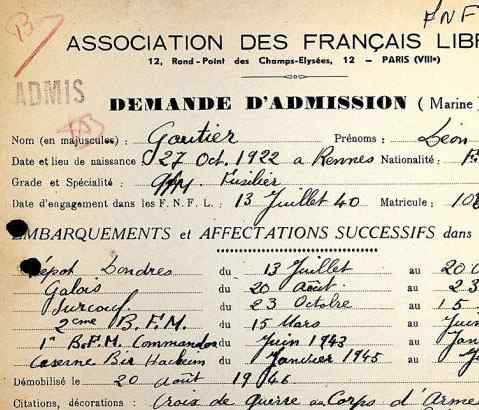 FNF
ASSOCIATION DES FRANÇAIS LIB
12, Rond-Point des Champs-Elysées, 12 – PARIS (VIIIe)
ADMIS
DEMANDE D'ADMISSION ( Marine
Nom (en majuscules) : Gautier Prénoms : Léon
Date et lieu de naissance : 27 Oct. 1922 a Rennes Nationalité : F
Grade et Spécialité : Fusilier
Date d'engagement dans les F. N. F. L. : 13 Juillet 40 Matricule : 108
EMBARQUEMENTS et AFFECTATIONS SUCCESSIFS dans
Dépot Londres du 13 Juillet au 20 O
Galois du 20 Août au 23
Surcouf du 23 Octobre au 15
2eme B. F. M. du 15 Mars au Juin
1er B.F.M. Commandos du Juin 1943 au Jan
Caserne Bir Hacheim du Janvier 1945 au
Démobilisé le 20 août 1946
Citations, décorations : Croix de Guerre au Corps d'Armé